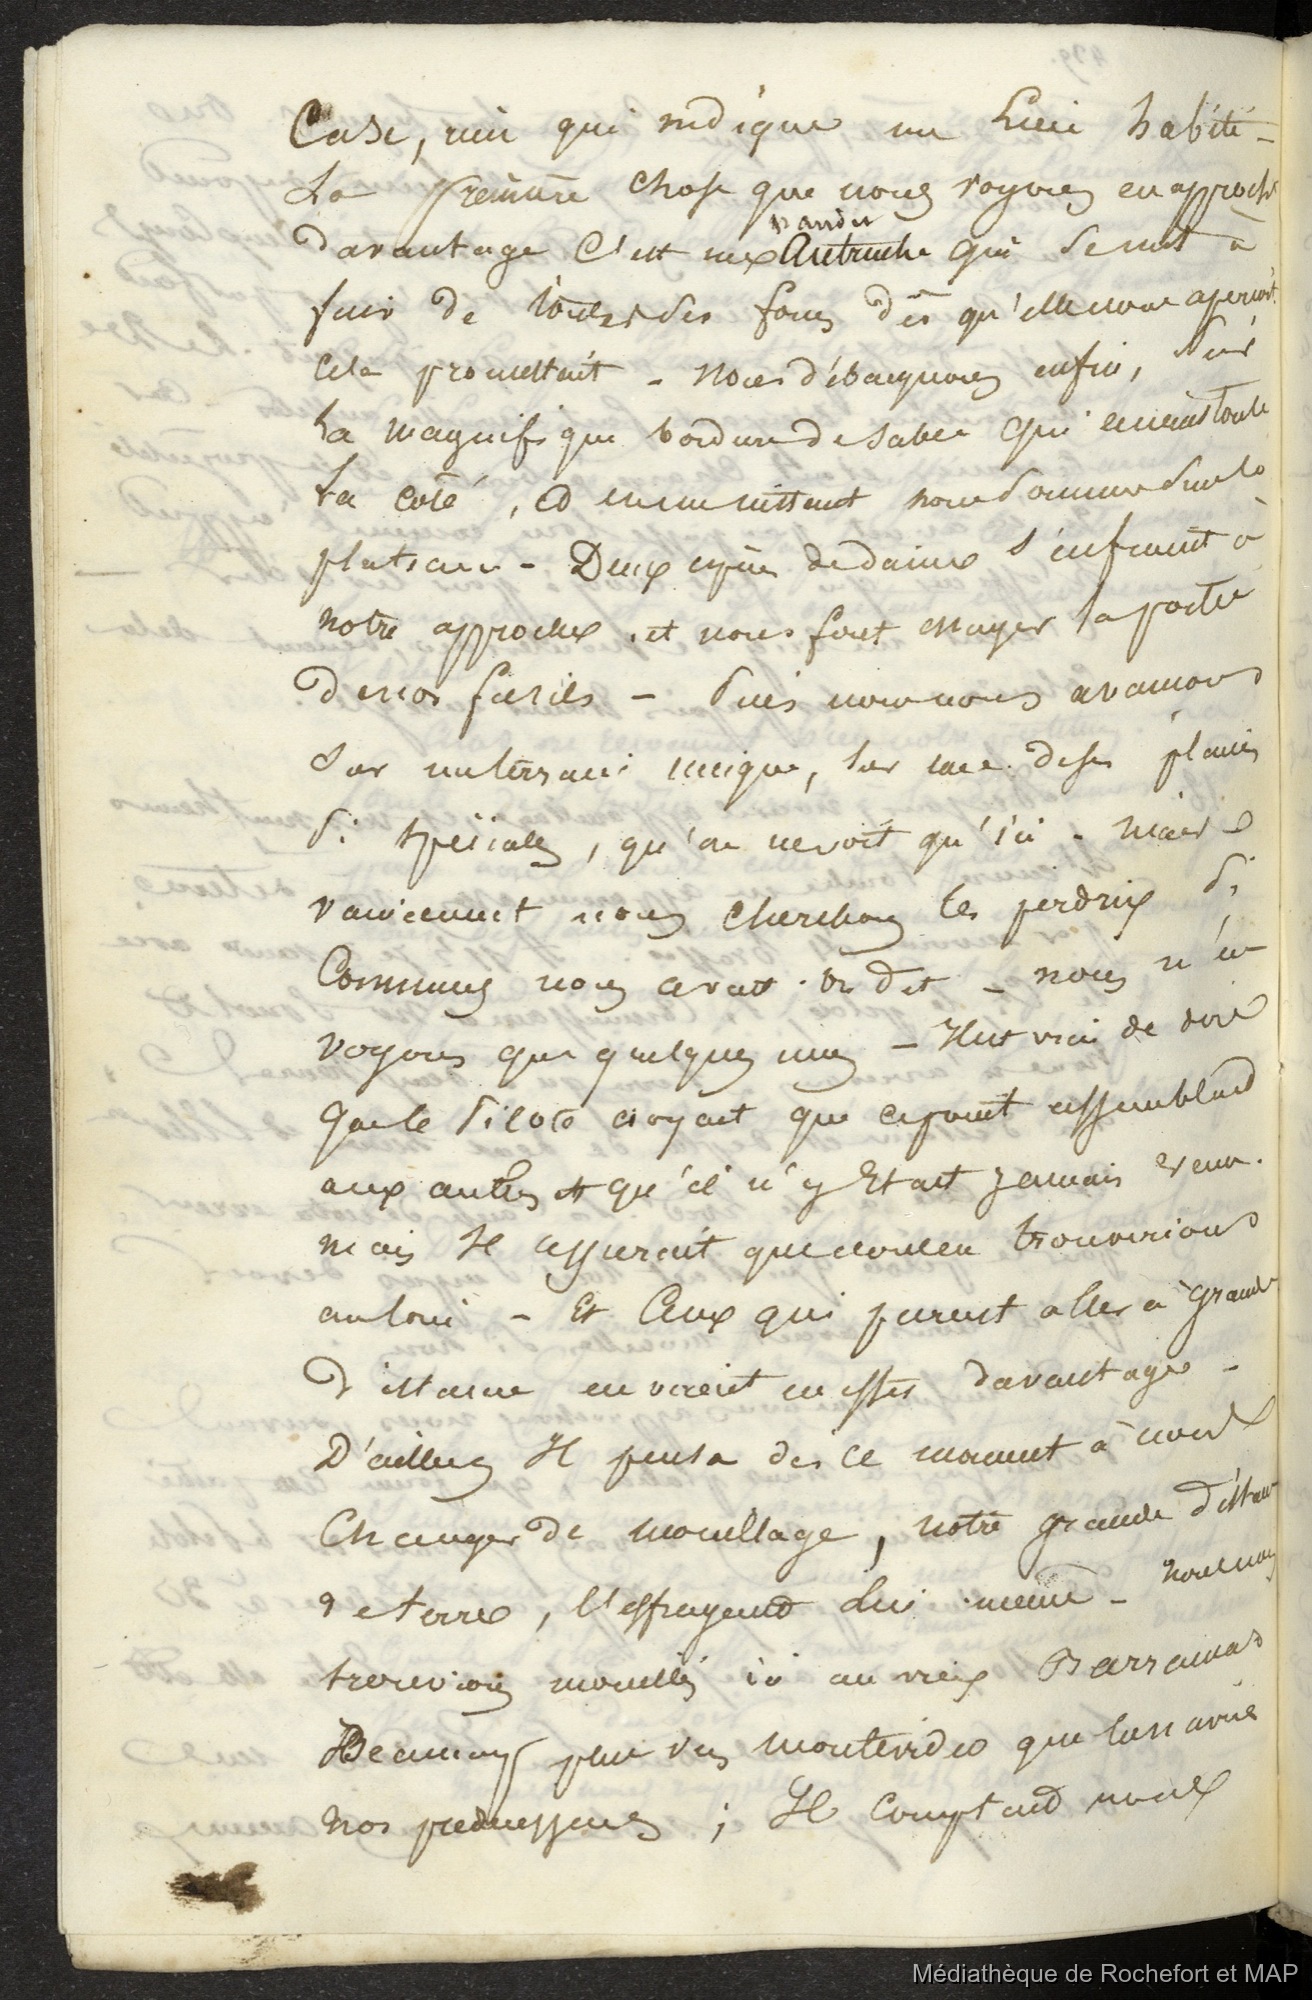 Case, rien qui indique un Lieu habité –
La première chose que nous voyons en approcht
nandu
davantage C'est une Autruche qui se met à
fuir de toutes ses forces dès qu'elle nous aperçoit.
Cela promettait – Nous débarquons enfin, sur
La magnifique bordure de sable qui ceint toute
La côte, et en un instant nous sommes sur le
plateau – Deux espèces de daims s'enfuient à
notre approche, et nous font essayer la portée
de nos fusils – Puis nous nous avancons
Sur un terrain unique, sur une de ses plaines
Si spéciales, qu'on ne voit qu'ici – Mais
vainement nous cherchons les perdrix si
Communes nous avait on dit – nous n'en
voyons que quelques unes – Il est vrai de dire
que le Pilote croyait que ce point ressemblait
aux autres et qu'il n'y Etait jamais venu.
mais Il assurait que nous en trouverions
au loin – Et Ceux qui purent aller à grande
distance en virent en effet davantage –
D'ailleurs Il pensa dès ce moment à nous
Changer de mouillage, notre grande distance
de terre, l'effrayant Lui même – nous nous
trouvions mouillés ici au vieux Barrancas
Beaucoup plus vers Montevideo que tous avis
nos prédécesseurs ; Il Comptait nous